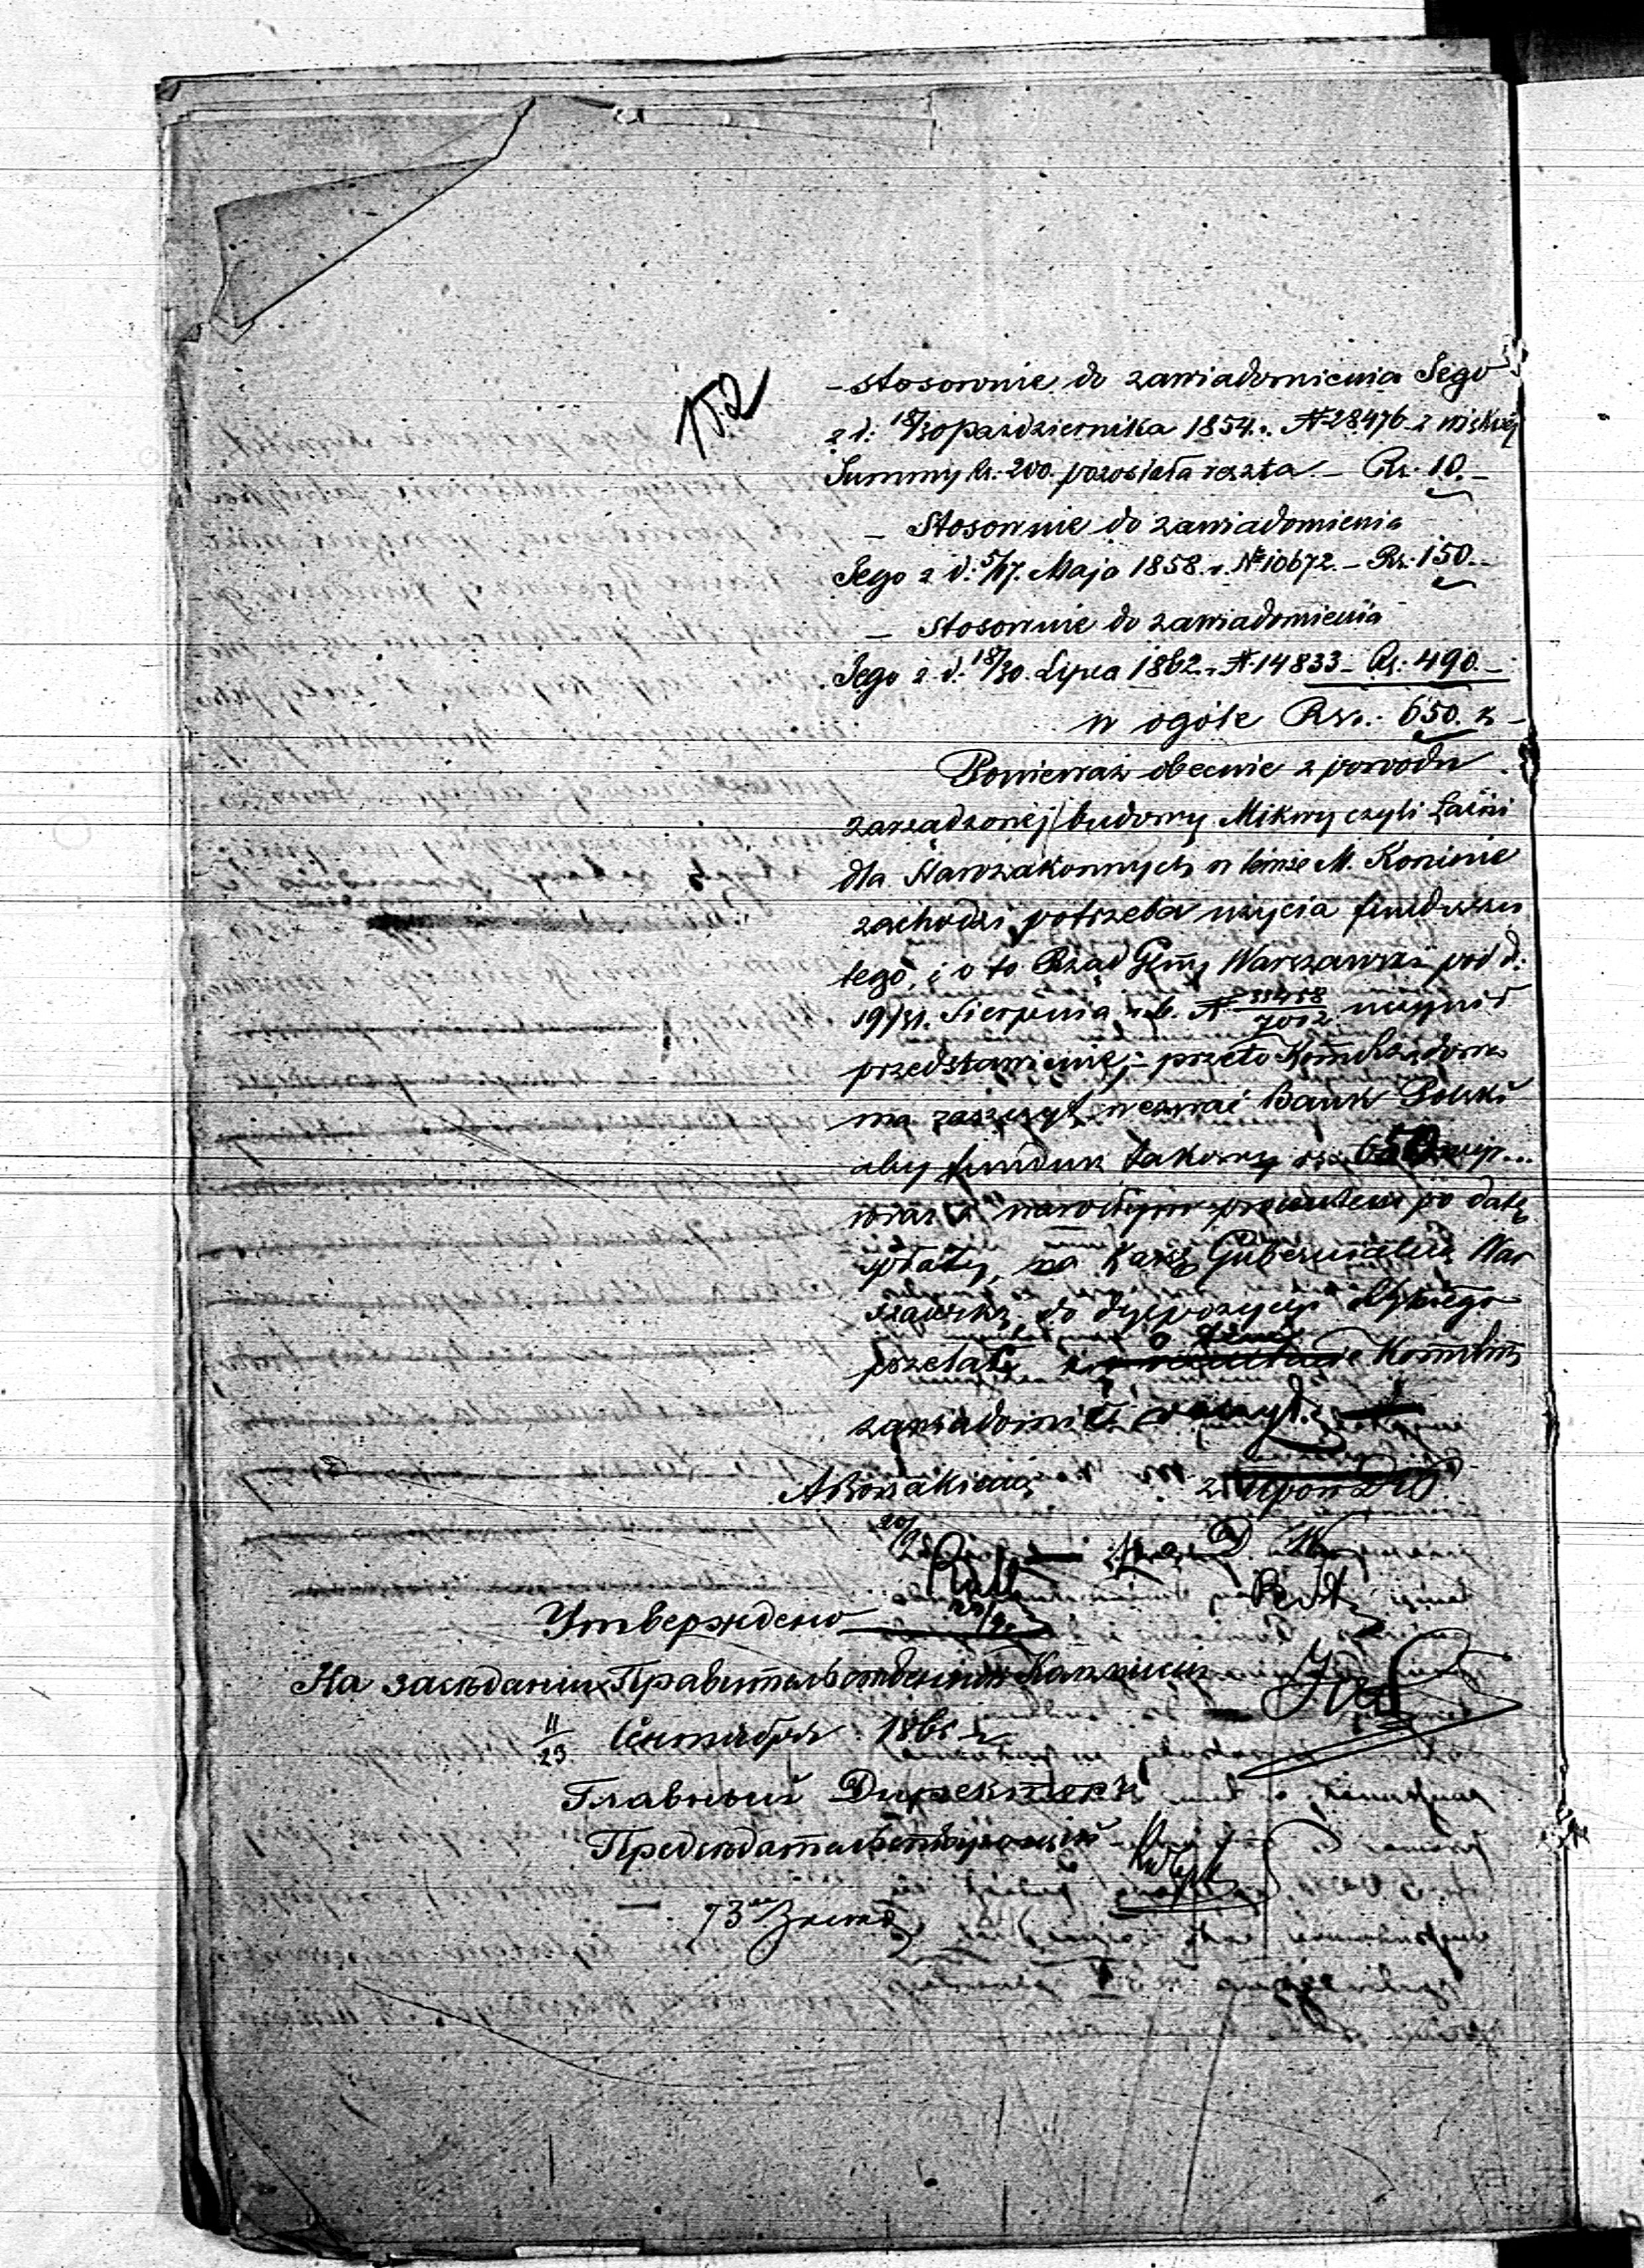 152
- stosownie do zawiadomienia Jego
z d: 18/30 października 1854 r. N 28476 z większej
Summy Rs. 200. pozostała reszta. - Rs. 10. -
- Stosownie do zawiadomienia
Jego z d: 5/17. Maja 1858. r. N 10672. - Rs. 150. -
- Stosownie do zawiadomienia
Jego z d: 18/30. Lipca 1862. r. N 14833 - Rs. 490. -
w ogóle Rsr. 650. k -
Ponieważ obecnie z powodu
zarządzonej budowy Mikwy czyli Łaźni
dla Starozakonnych w temże M. Koninie
zachodzi potrzeba użycia funduszu
tego, i o to Rząd Głny Warszawski pod d.
19/31. Sierpnia r. b. N 33458/7012 uczynił
przedstawienie; - przeto Kom. Rządowa
ma zaszczyt wezwać Bank Polski
aby fundusz takowy rs. 650
wraz z narosłym procentem po datę
wypłaty, na Kassę Gubernialną War
szawską do dyspozycyi
przelał, i o tém Kom. Rz.
zawiadomić raczył.
20/9
Утверждено
На заседании Правительственной Коммисии
11/23 Сентября 1865 г.
Главный Директоръ
Председательствующий